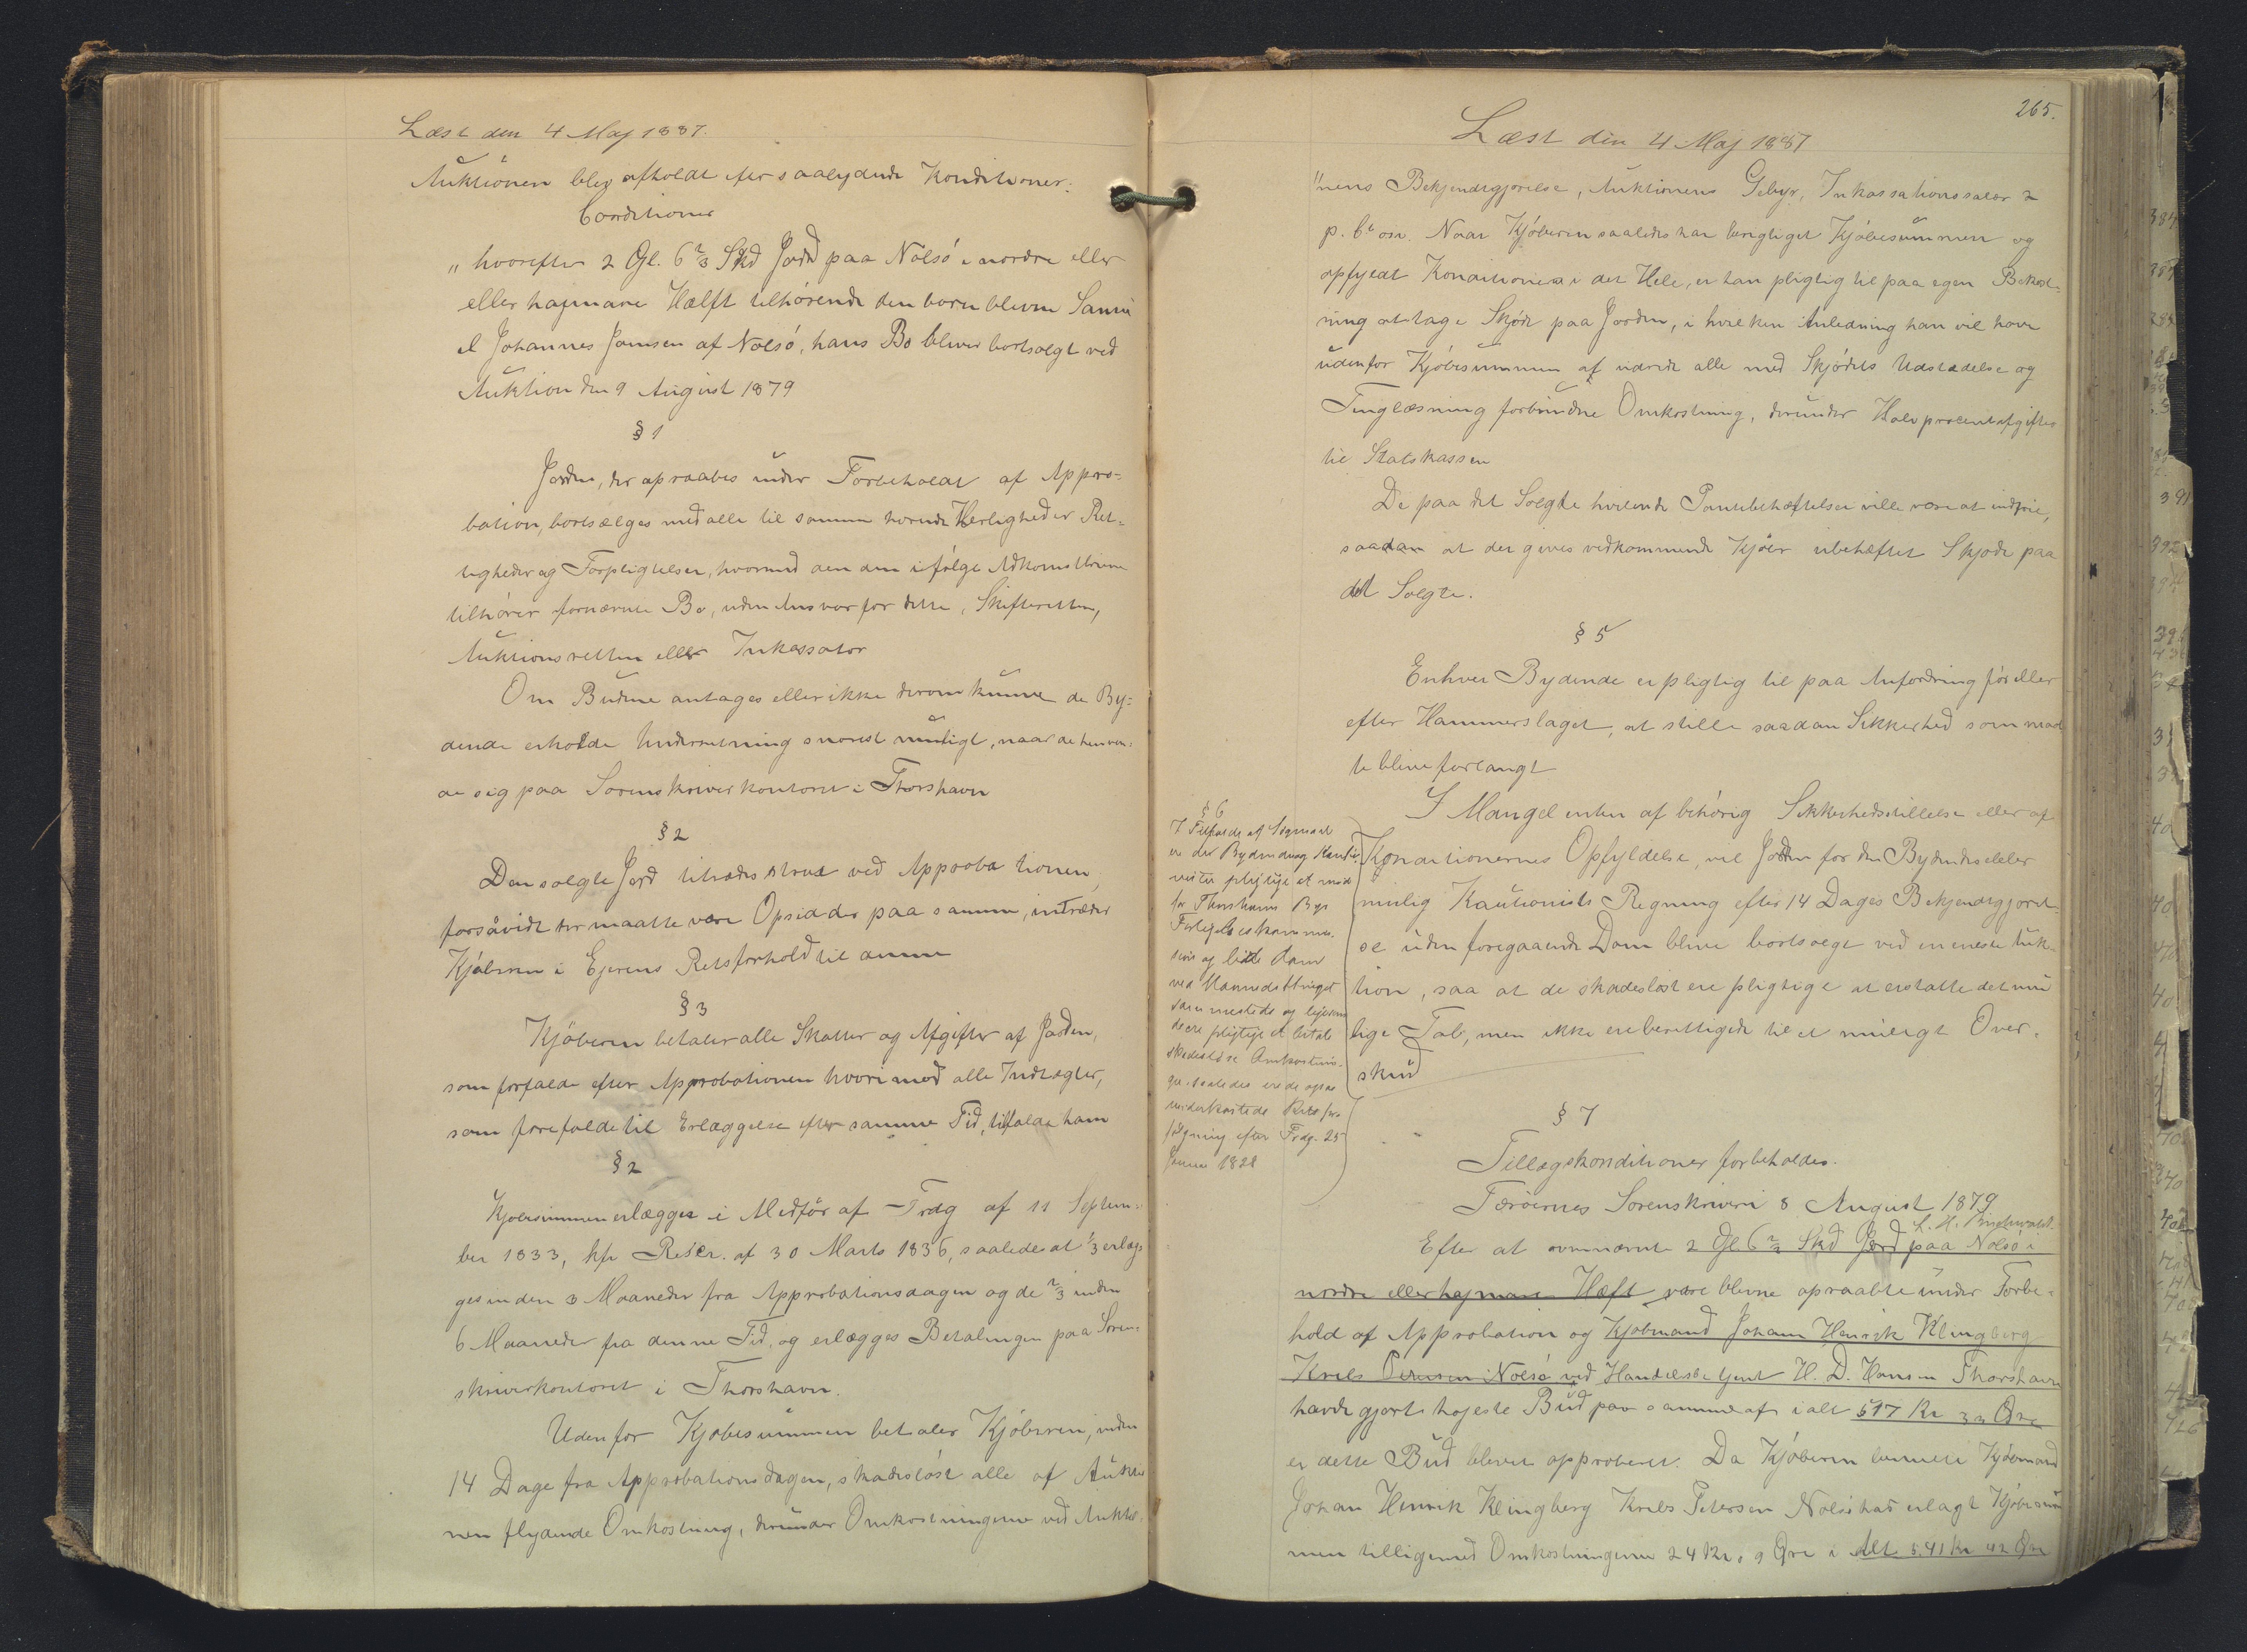 Læst den 4 Maj 1887.
Auktionen blev afholdt efter saalydende Konditioner:
Conditioner
"hvorefter 2 Gl. 6 2/3 Skd Jord paa Nolsö i nordre eller
eller hajmare Hælft tilhörende den bornblevne Samu
el Johannes Joensen af Nolsö, hans Bo bliver bortsolgt ved
Auktion den 9 August 1879
§ 1
Jorden, der opraabes under Forbeholdt af Appro=
bation, bortsælges med alle til samme hörende Herligheder Ret=
tigheder og Forpligtelser, hvormed den den ifölge Adkomsterne
tilhörer fornævnte Bo, uden Ansvar for dette, Skifteretten,
Auktionsretten eller Inkassator
Om Budene antages eller ikke derom kunne de By=
dende erholde Underretning snarest muligt, naar de henven=
de sig paa Sorenskriverkontoret i Thorshavn
§ 2
Den solgte Jord tiltrædes strax ved Approba tionen,
forsåvidt der maatte være Opsidder paa samme, intræder
Kjöberen i Ejerens Retsforhold til denne
§ 3
Kjöberen betaler alle Skatter og Afgifter af Jorden,
som forfalde efter Approbationen hvorimod alle Indtægter,
som forefalde til Erlæggelse efter samme Tid, tilfalde ham
§ 2
Kjobesummen erlægges i Medför af Frdg af 11 Septem=
ber 1833, kfr Rescr. af 30 Marts 1836, saaledes at 1/3 erlæg
ges inden 3 Maaneder fra Approbationsdagen og de 2/3 inden
6 Maaneder fra denne Tid, og erlægges Betalingen paa Soren=
skriverkontoret i Thorshavn.
Uden for Kjobesummen betaler Kjöberen, inden
14 Dage fra Approbationsdagen, skadeslöst alle af Auktio
nen flydende Omkostning, derunder Omkostningerne ved Auktio=
265.
Læst den 4 Maj 1887
"nens Bekjendtgjorelse, Auktionens Gebyr, Inkassationssalær 2
p. Ct osv. Naar Kjöberen saaledes har berigtiget Kjöbesummen og
opfyldt Konditionerne i det Hele, er han pligtig til paa egen Bekost=
ning at tage Skjöde paa Jorden, i hvilken Anledning han vil have
udenfor Kjöbesummen at udrede alle med Skjödets Udstædelse og
Tinglæsning forbundne Omkostning, derunder Halvprocentafgiften
til Statskassen
De paa det Solgte hvilende Pantebehæftelser ville være at indfrie,
saadan at der gives vedkommende Kjöber ubehæftet Skjode paa
det Solgte.
§ 5
Enhver Bydende er pligtig til paa Anfordring för eller
efter Hammerslaget, at stille saadan Sikkerhed som maat
te blive forlangt
I Mangel enten af behörig Sikkerhedsstillelse eller af
Konditionernes Opfyldelse, vil Jorden for den Bydendes eller
mulig Kautionists Regning efter 14 Dages Bekjendtgjorel=
se uden foregaaende Dom blive bortsolgt ved en eneste Auk=
tion, saa at de skadeslöst ere pligtige at erstatte det mu
lige Tab, men ikke ere berettigede til et muligt Over=
skud
§ 6
I Tilfælde af Sögmaal
er der Bydende og Kautio
nister pligtige at möde
for Thorshavns Byes
Forligelseskommis=
sion og lide Dom
ved Manedsthinget
sammesteds og ligesom
de ere pligtige at betale
skadeslöse Omkostnin=
ger saaledes ere de ogsaa
underkastede Retsfor=
fölgning efter Frdg. 25
Januar 1828
§ 7
Tillægskonditioner forbeholdes.
Færöernes Sorenskriveri 8 August 1879
Efter at ovennævnte 2 Gl 6 2/3 Skd Jord paa Nolsö i
nordre eller hajmare Hælft vare blevne opraabte under Forbe=
hold af Approbation og Kjobmand Johan Henrik Klingberg
Krebs Petersen Nolsö ved Handelsbetjent H. D. Hansen Thorshavn
havde gjort hojeste Bud paa samme af i alt 517 Kr 33 Öre
er dette Bud blevet approberet. Da Kjöberen bemeldte Kjöbmand
Johan Henrik Klingberg Krebs Petersen Nolsö har erlagt Kjöbesum
men tilligemed Omkostningerne 24 Kr. 9 Öre i Alt 541 Kr 42 Öre